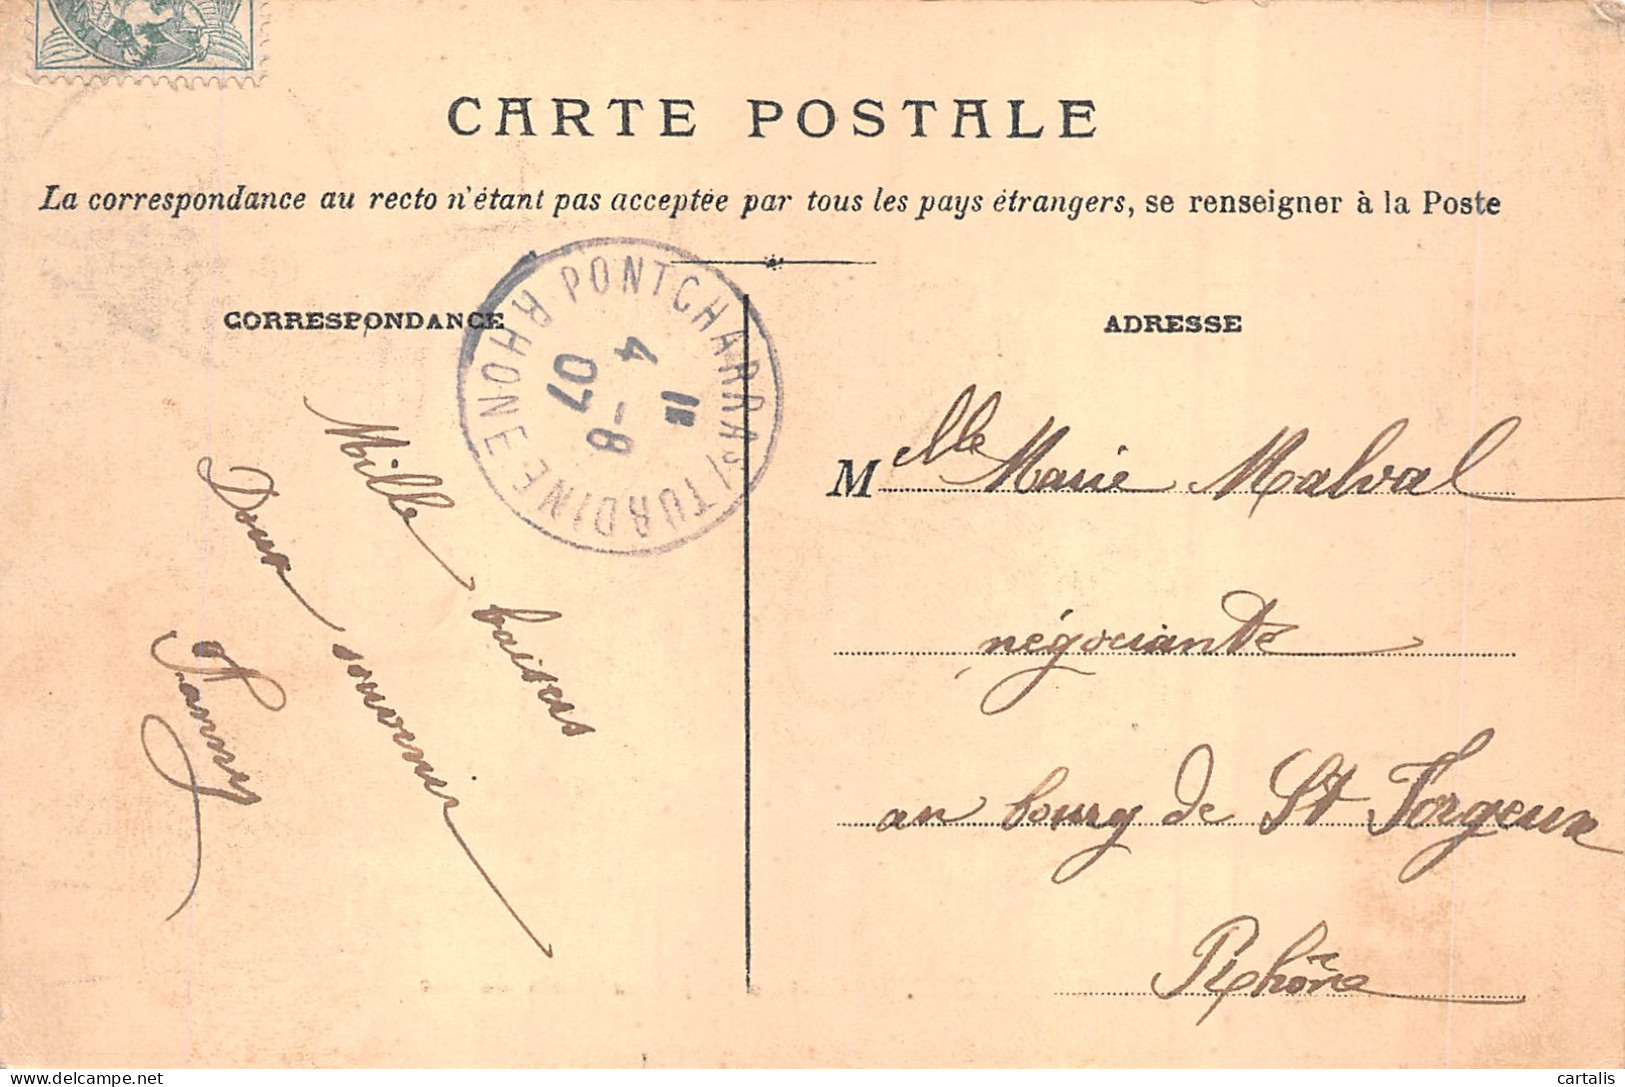 CARTE POSTALE
La correspondance au recto n'étant pas acceptée par tous les pays étrangers, se renseigner à la Poste
CORRESPONDANCE
ADRESSE
PONTCHARRA S/TURDINE
RHONE
4 -8
07
Mille baisers
Doux souvenir
Fanny
M elle Marie Malval
négociante
au bourg de St Forgeux
Rhône
cartalis